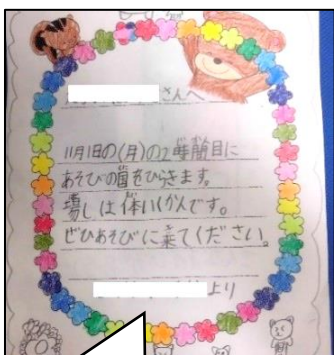 さんへ
11月1日の(月)の2時間目に
あそびの国をひらきます。
場しは体いくかんです。
ぜひあそびに来てください。
より